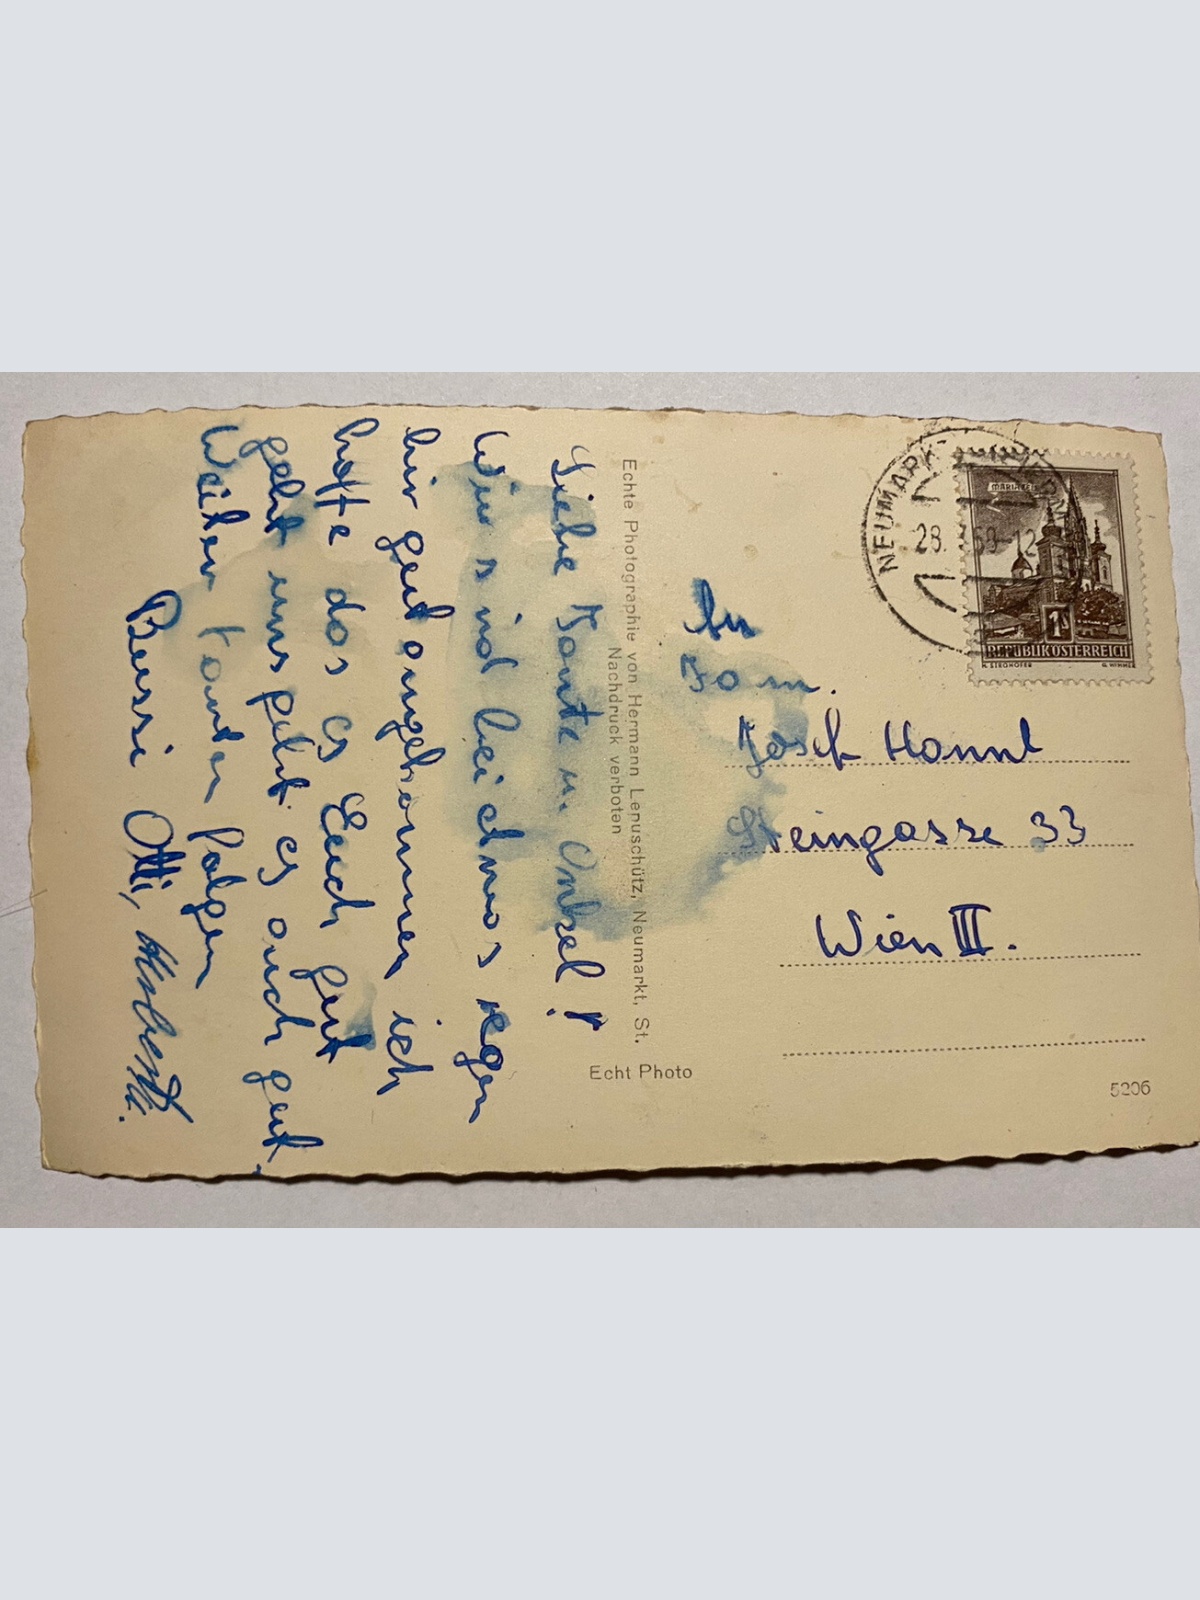 Liebe Tante u. Onkel!
Wir sind bei etwas regen
hir gut angekommen ich
hoffe das es Euch gut
geht uns geht es auch gut.
Weiher Karten folgen
Bussi Otti,
Echte Photographie von Hermann Lenuschütz, Neumarkt, St.
Nachdruck verboten
Echt Photo
NEUMARKT
28. 59-12
MARIAZELL
1S
REPUBLIK ÖSTERREICH
K. STROHOFER G. WIMMER
An
Fam.
Josef Hannl
Steingasse 33
Wien III.
5206